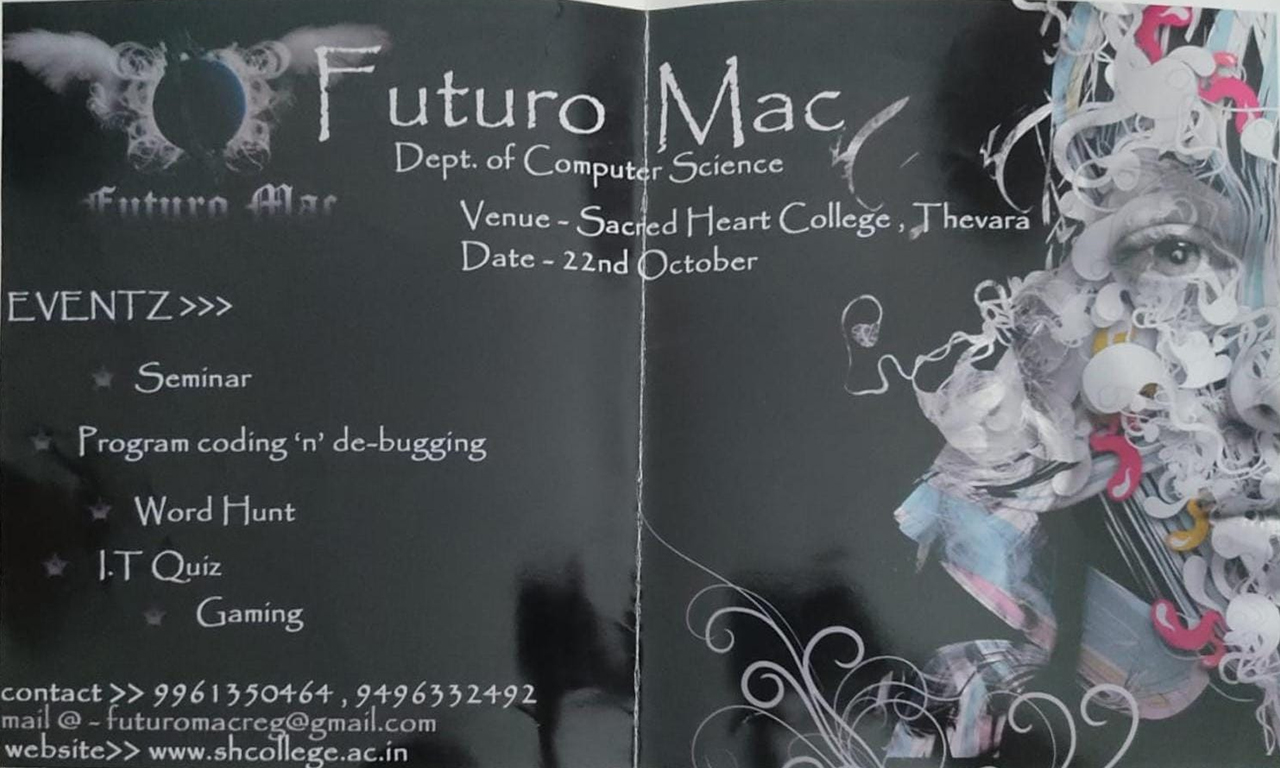 Futuro Mac
Futuro Mac
Dept. of Computer Science
Venue - Sacred Heart College , Thevara
Date - 22nd October
EVENTZ >>>
Seminar
Program coding ‘n’ de-bugging
Word Hunt
I.T Quiz
Gaming
contact >> 9961350464 , 9496332492
mail @ - futuromacreg@gmail.com
website>> www.shcollege.ac.in